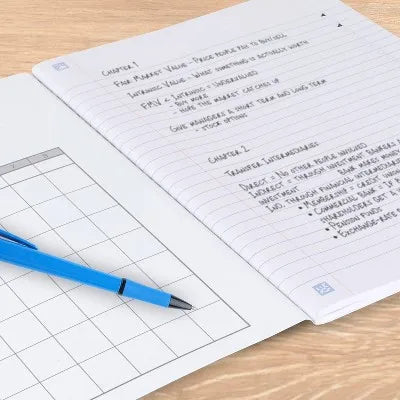 CHAPTER 1
FAIR MARKET VALUE - PRICE PEOPLE PAY TO BUY/SELL
INTRINSIC VALUE - WHAT SOMETHING IS ACTUALLY WORTH
FMV < INTRINSIC = UNDERVALUED
- BUY MORE
- HOPE THE MARKET CATCHES UP
GIVE MANAGERS A SHORT TERM AND LONG TERM
- STOCK OPTIONS
CHAPTER 2
TRANSFER INTERMEDIARIES
DIRECT = NO OTHER PEOPLE INVOLVED
INDIRECT = THROUGH INVESTMENT BANKERS
INVESTMENT BANK MAKES
IND. THROUGH FINANCIAL
• MEMBERSHIP = CREDIT
• COMMERCIAL BANK = IF
SHAREHOLDERS GET A
• PENSION FUNDS -
• EXCHANGE-RATE